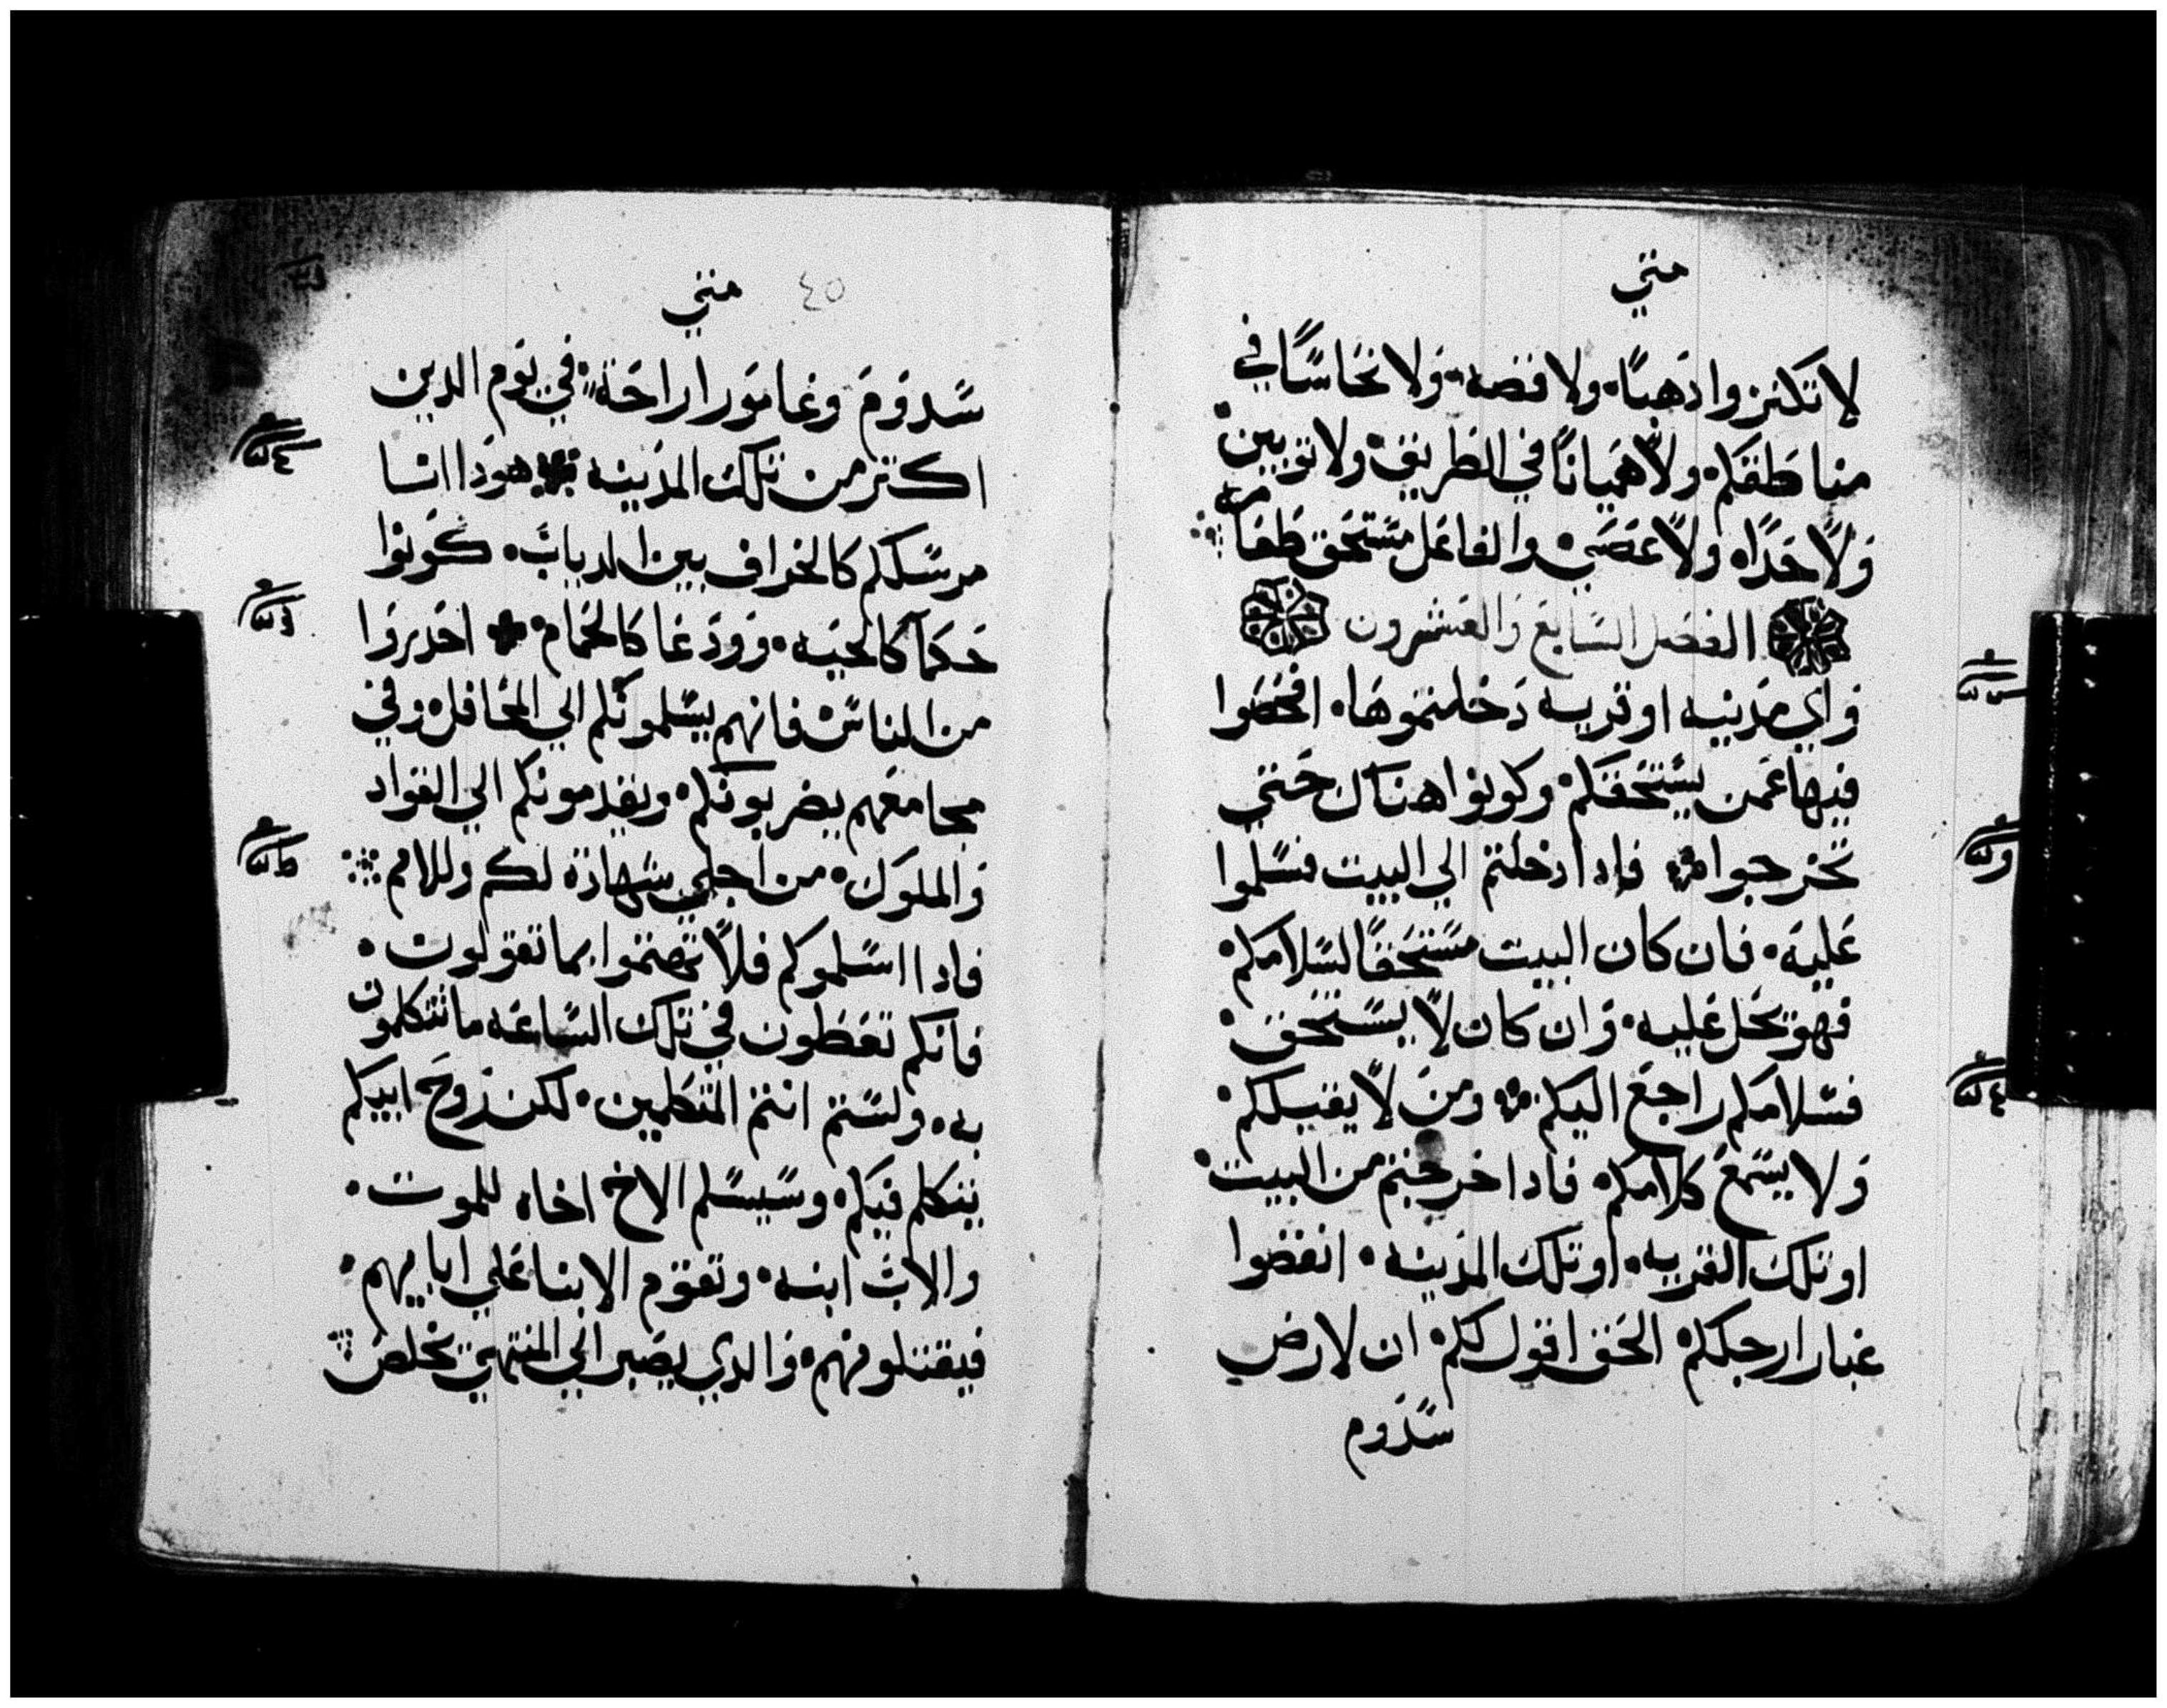 متي
لا تكنزوا دَهبًا. ولا فضه. وَلا نحَاسًا في
مناطقكم. ولا هَميانًا في الطريق. ولا توبين
وَلا حَدًاه ولا عَصَي. والفاعَل مسَتحَق طَعَامه
الفصَل السَابعَ وَالعَشرون
وَاي مدَينه او قريه دَخلتموهَا. افحَصَوا
فيهَا عَمن يسَتحَقكم. وكونوا هناك حَتي
تخرجوا. فادا دخلتم الي البيت فسَلموا
عَليه. فان كان البيت مسَتحَقًا لسَلامكم.
فهو يحَل عَليه. وَان كان لا يسَتحَق.
فسَلامكم راجعَ اليكم. ومنَ لا يقبلكم.
وَلا يسَمعَ كلامكم. فادا خرجتم من البيت.
او تلك القريه. او تلك المدَينه. انفضوا
غبار ارجلكم. الحَق اقول لكم. ان لارض
سَدَوم
متي ٤٥
سَدوَمَ وغامَورا راحَة. في يوَم الدين
اكتر من تلك المدَينه هوَدا انا
مرسَلكم كالخراف بين الديابَ. كوَنوا
حَكمآ كالحَيه. وَودَعَا كالحَمام. احَدروَا
من الناسَ. فانهم يسَلموَنكم الي المحَافل. وفي
مجامعَهم يضربوَنكم. ويقدمونكم الي القوَاد
وَالملوَك. من اجلي شهادة لكم وللامم
فادا اسَلموكم فلا تهتموا بما تقولون.
فانكم تعَطون في تلك السَاعَه ما تتكلمون
به. ولسَتم انتم المتكلمين. لكن روَحَ ابيكم
يتكلم فيكم. وسَيسَلم الاخ اخاه للموت.
والابَ ابنه. وتقوم الابنا عَلي ابايهم.
فيقتلوَنهم. وَالدي يصَبر الي المنتهي يخلصَ